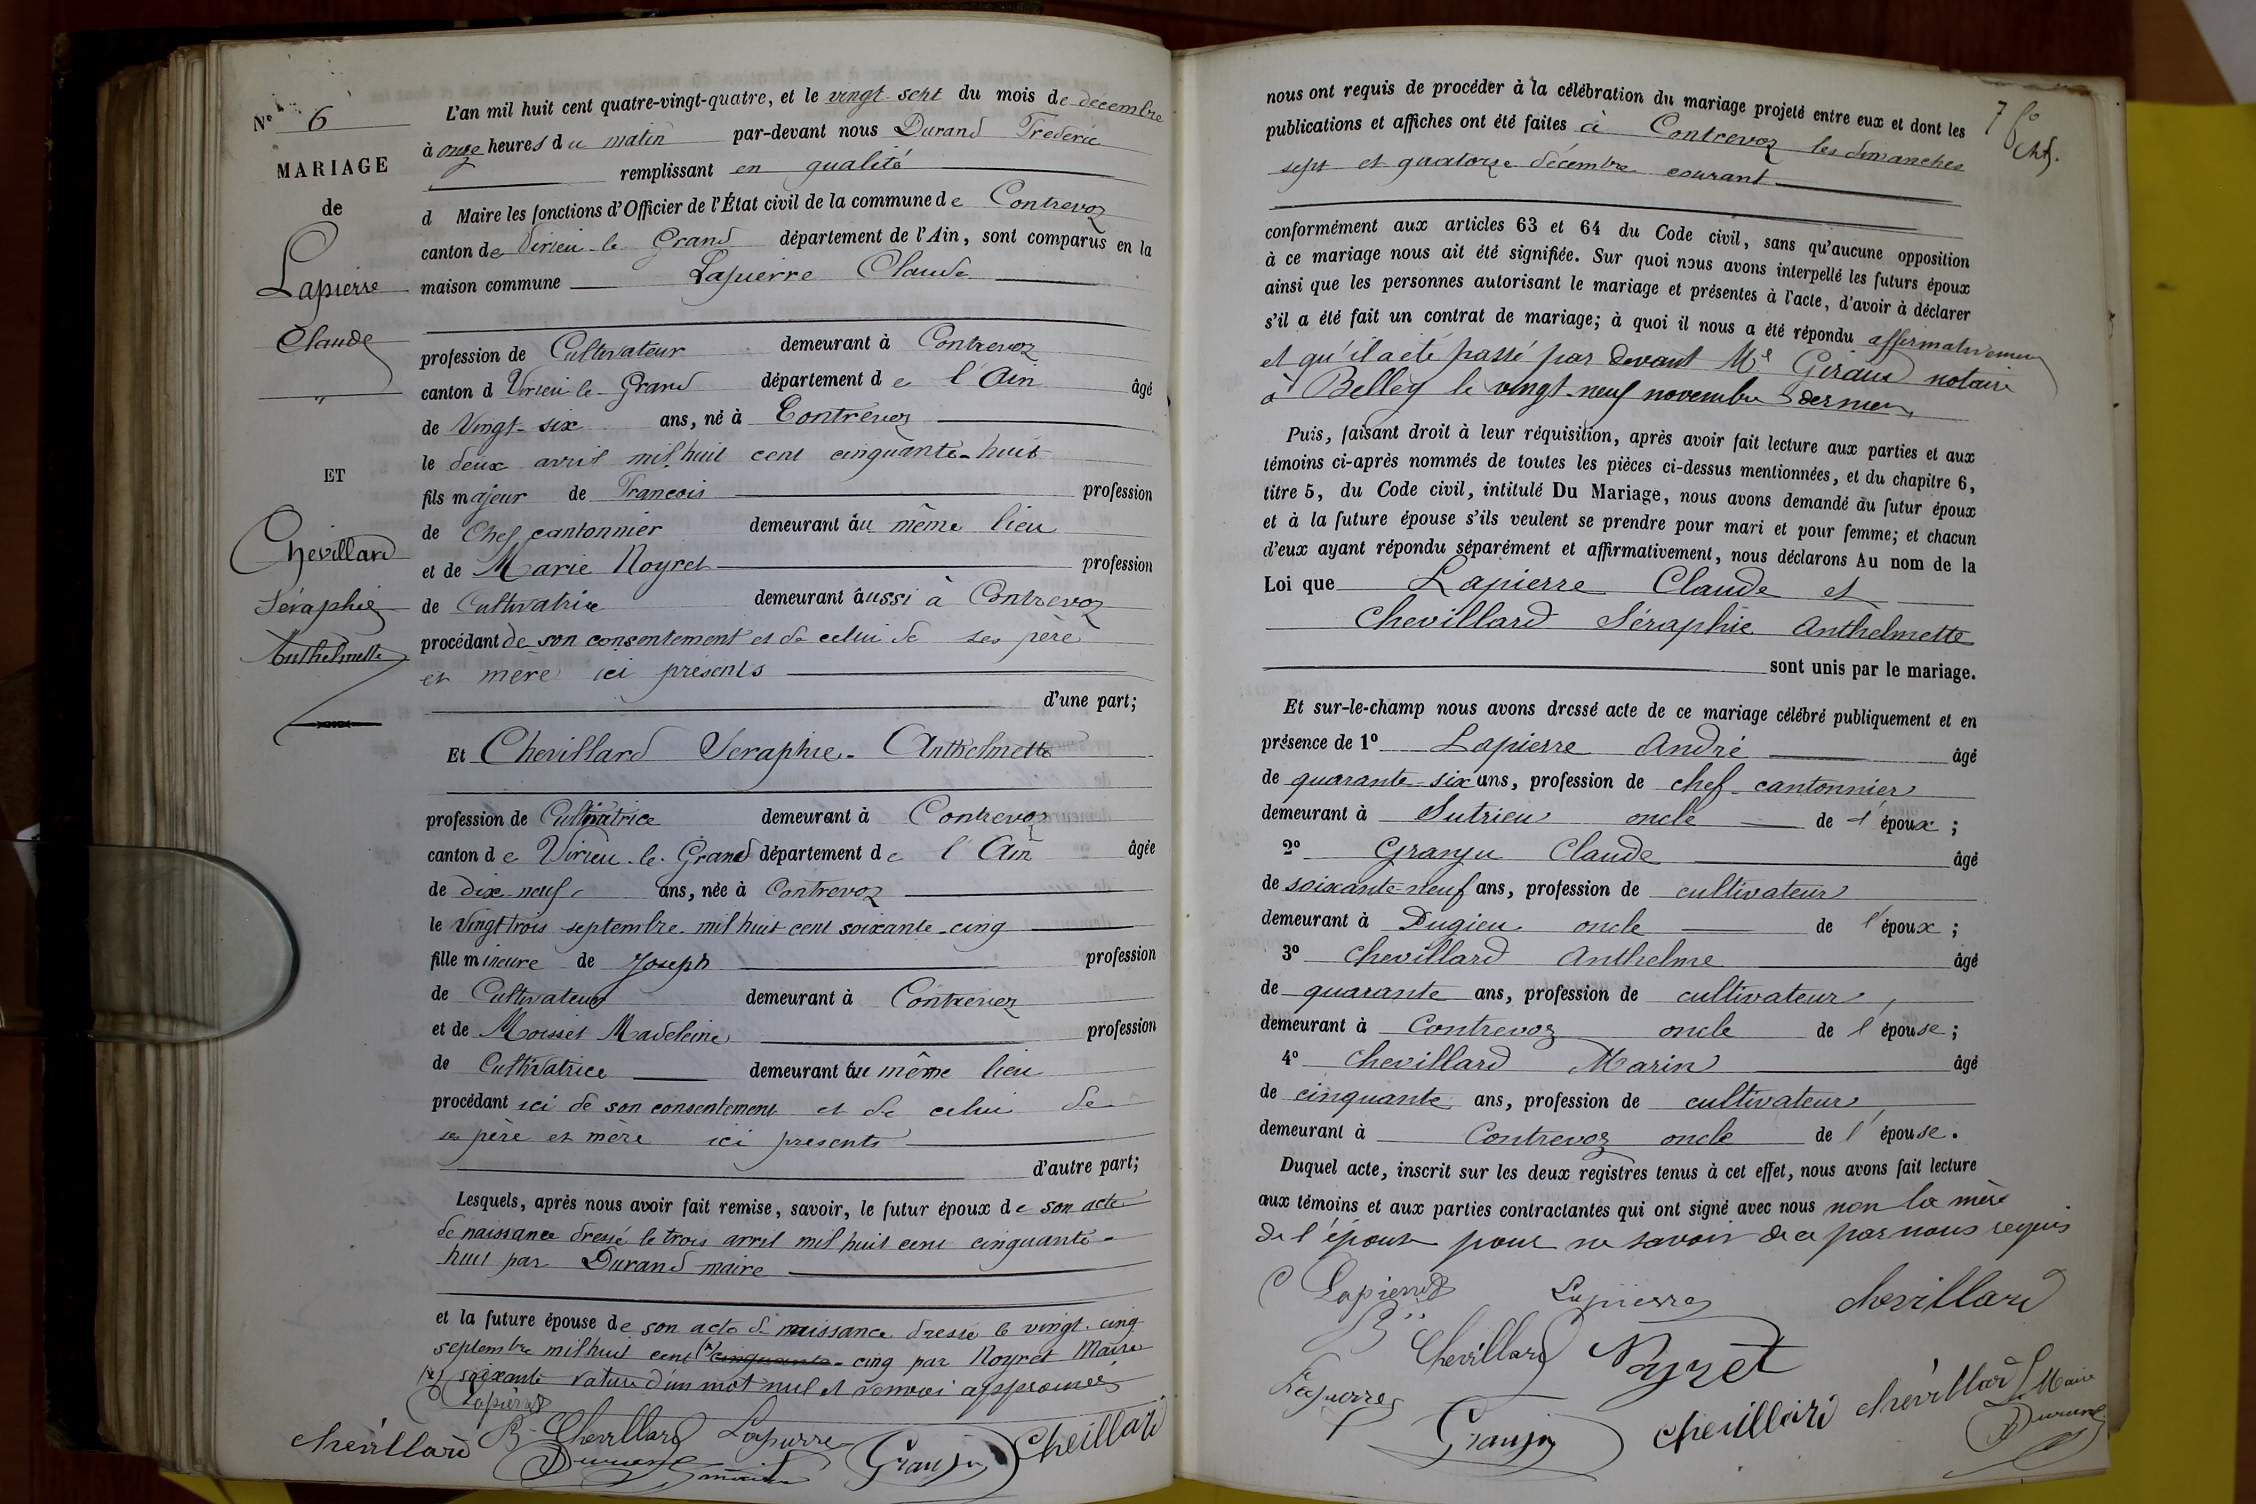 N° 6
MARIAGE
de
Lapierre
Claude
ET
Chevillard
Séraphie
Anthelmette
L'an mil huit cent quatre-vingt-quatre, et le vingt sept du mois de décembre
à onze heures du matin par-devant nous Durand Frederic
remplissant en qualité
d Maire les fonctions d'Officier de l'État civil de la commune de Contrevoz
canton de Virieu le Grand département de l'Ain, sont comparus en la
maison commune Lapierre Claude
profession de Cultivateur demeurant à Contrevoz
canton d Virieu le Grand département de l'Ain âgé
de Vingt-six ans, né à Contrevoz
le deux avril mil huit cent cinquante-huit
fils majeur de Francois profession
de Chef cantonnier demeurant au même lieu
et de Marie Noyret profession
de Cultivatrice demeurant aussi à Contrevoz
procédant de son consentement et de celui de ses père
et mère ici présents
d'une part;
Et Chevillard Seraphie-Anthelmette
profession de Cultivatrice demeurant à Contrevoz
canton de Virieu-le-Grand département de l'Ain âgée
de dix-neuf ans, née à Contrevoz
le Vingt trois septembre mil huit cent soixante-cinq
fille mineure de Joseph profession
de Cultivateur demeurant à Contrevoz
et de Moisset Madeleine profession
de Cultivatrice demeurant au même lieu
procédant ici de son consentement et de celui de
ses père et mère ici présents
d'autre part;
Lesquels, après nous avoir fait remise, savoir, le futur époux de son acte
de naissance dressé le trois avril mil huit cent cinquante-
huit par Durand maire
et la future épouse de son acte de naissance dressé le vingt-cinq
septembre mil huit cent (x) cinquante-cinq par Noyret Maire
(x) soixante rature d'un mot nul et renvoi approuvés
C Lapierre
chevillard B Chevillard Lapierre Granju Cheillard
Durand maire
7 fo
nous ont requis de procéder à la célébration du mariage projeté entre eux et dont les
publications et affiches ont été faites à Contrevoz les dimanches
sept et quatorze décembre courant
conformément aux articles 63 et 64 du Code civil, sans qu'aucune opposition
à ce mariage nous ait été signifiée. Sur quoi nous avons interpellé les futurs époux
ainsi que les personnes autorisant le mariage et présentes à l'acte, d'avoir à déclarer
s'il a été fait un contrat de mariage; à quoi il nous a été répondu affirmativement
et qu'il a été passé par devant Me Giraud notaire
à Belley le vingt-neuf novembre dernier
Puis, faisant droit à leur réquisition, après avoir fait lecture aux parties et aux
témoins ci-après nommés de toutes les pièces ci-dessus mentionnées, et du chapitre 6,
titre 5, du Code civil, intitulé Du Mariage, nous avons demandé au futur époux
et à la future épouse s'ils veulent se prendre pour mari et pour femme; et chacun
d'eux ayant répondu séparément et affirmativement, nous déclarons Au nom de la
Loi que Lapierre Claude et
Chevillard Séraphie Anthelmette
sont unis par le mariage.
Et sur-le-champ nous avons dressé acte de ce mariage célébré publiquement et en
présence de 1° Lapierre André âgé
de quarante-six ans, profession de chef-cantonnier
demeurant à Sutrieu oncle de l'époux;
2° Granju Claude âgé
de soixante-neuf ans, profession de cultivateur
demeurant à Pugieu oncle de l'époux;
3° Chevillard Anthelme âgé
de quarante ans, profession de cultivateur,
demeurant à Contrevoz oncle de l'épouse;
4° Chevillard Marin âgé
de cinquante ans, profession de cultivateur
demeurant à Contrevoz oncle de l'épouse.
Duquel acte, inscrit sur les deux registres tenus à cet effet, nous avons fait lecture
aux témoins et aux parties contractantes qui ont signé avec nous non la mère
de l'épouse pour ne savoir de ce par nous requis
C Lapierre Lapierre chevillard
Chevillard Noyret
Lapierre Granju chevillard chevillard Le Maire
Durand